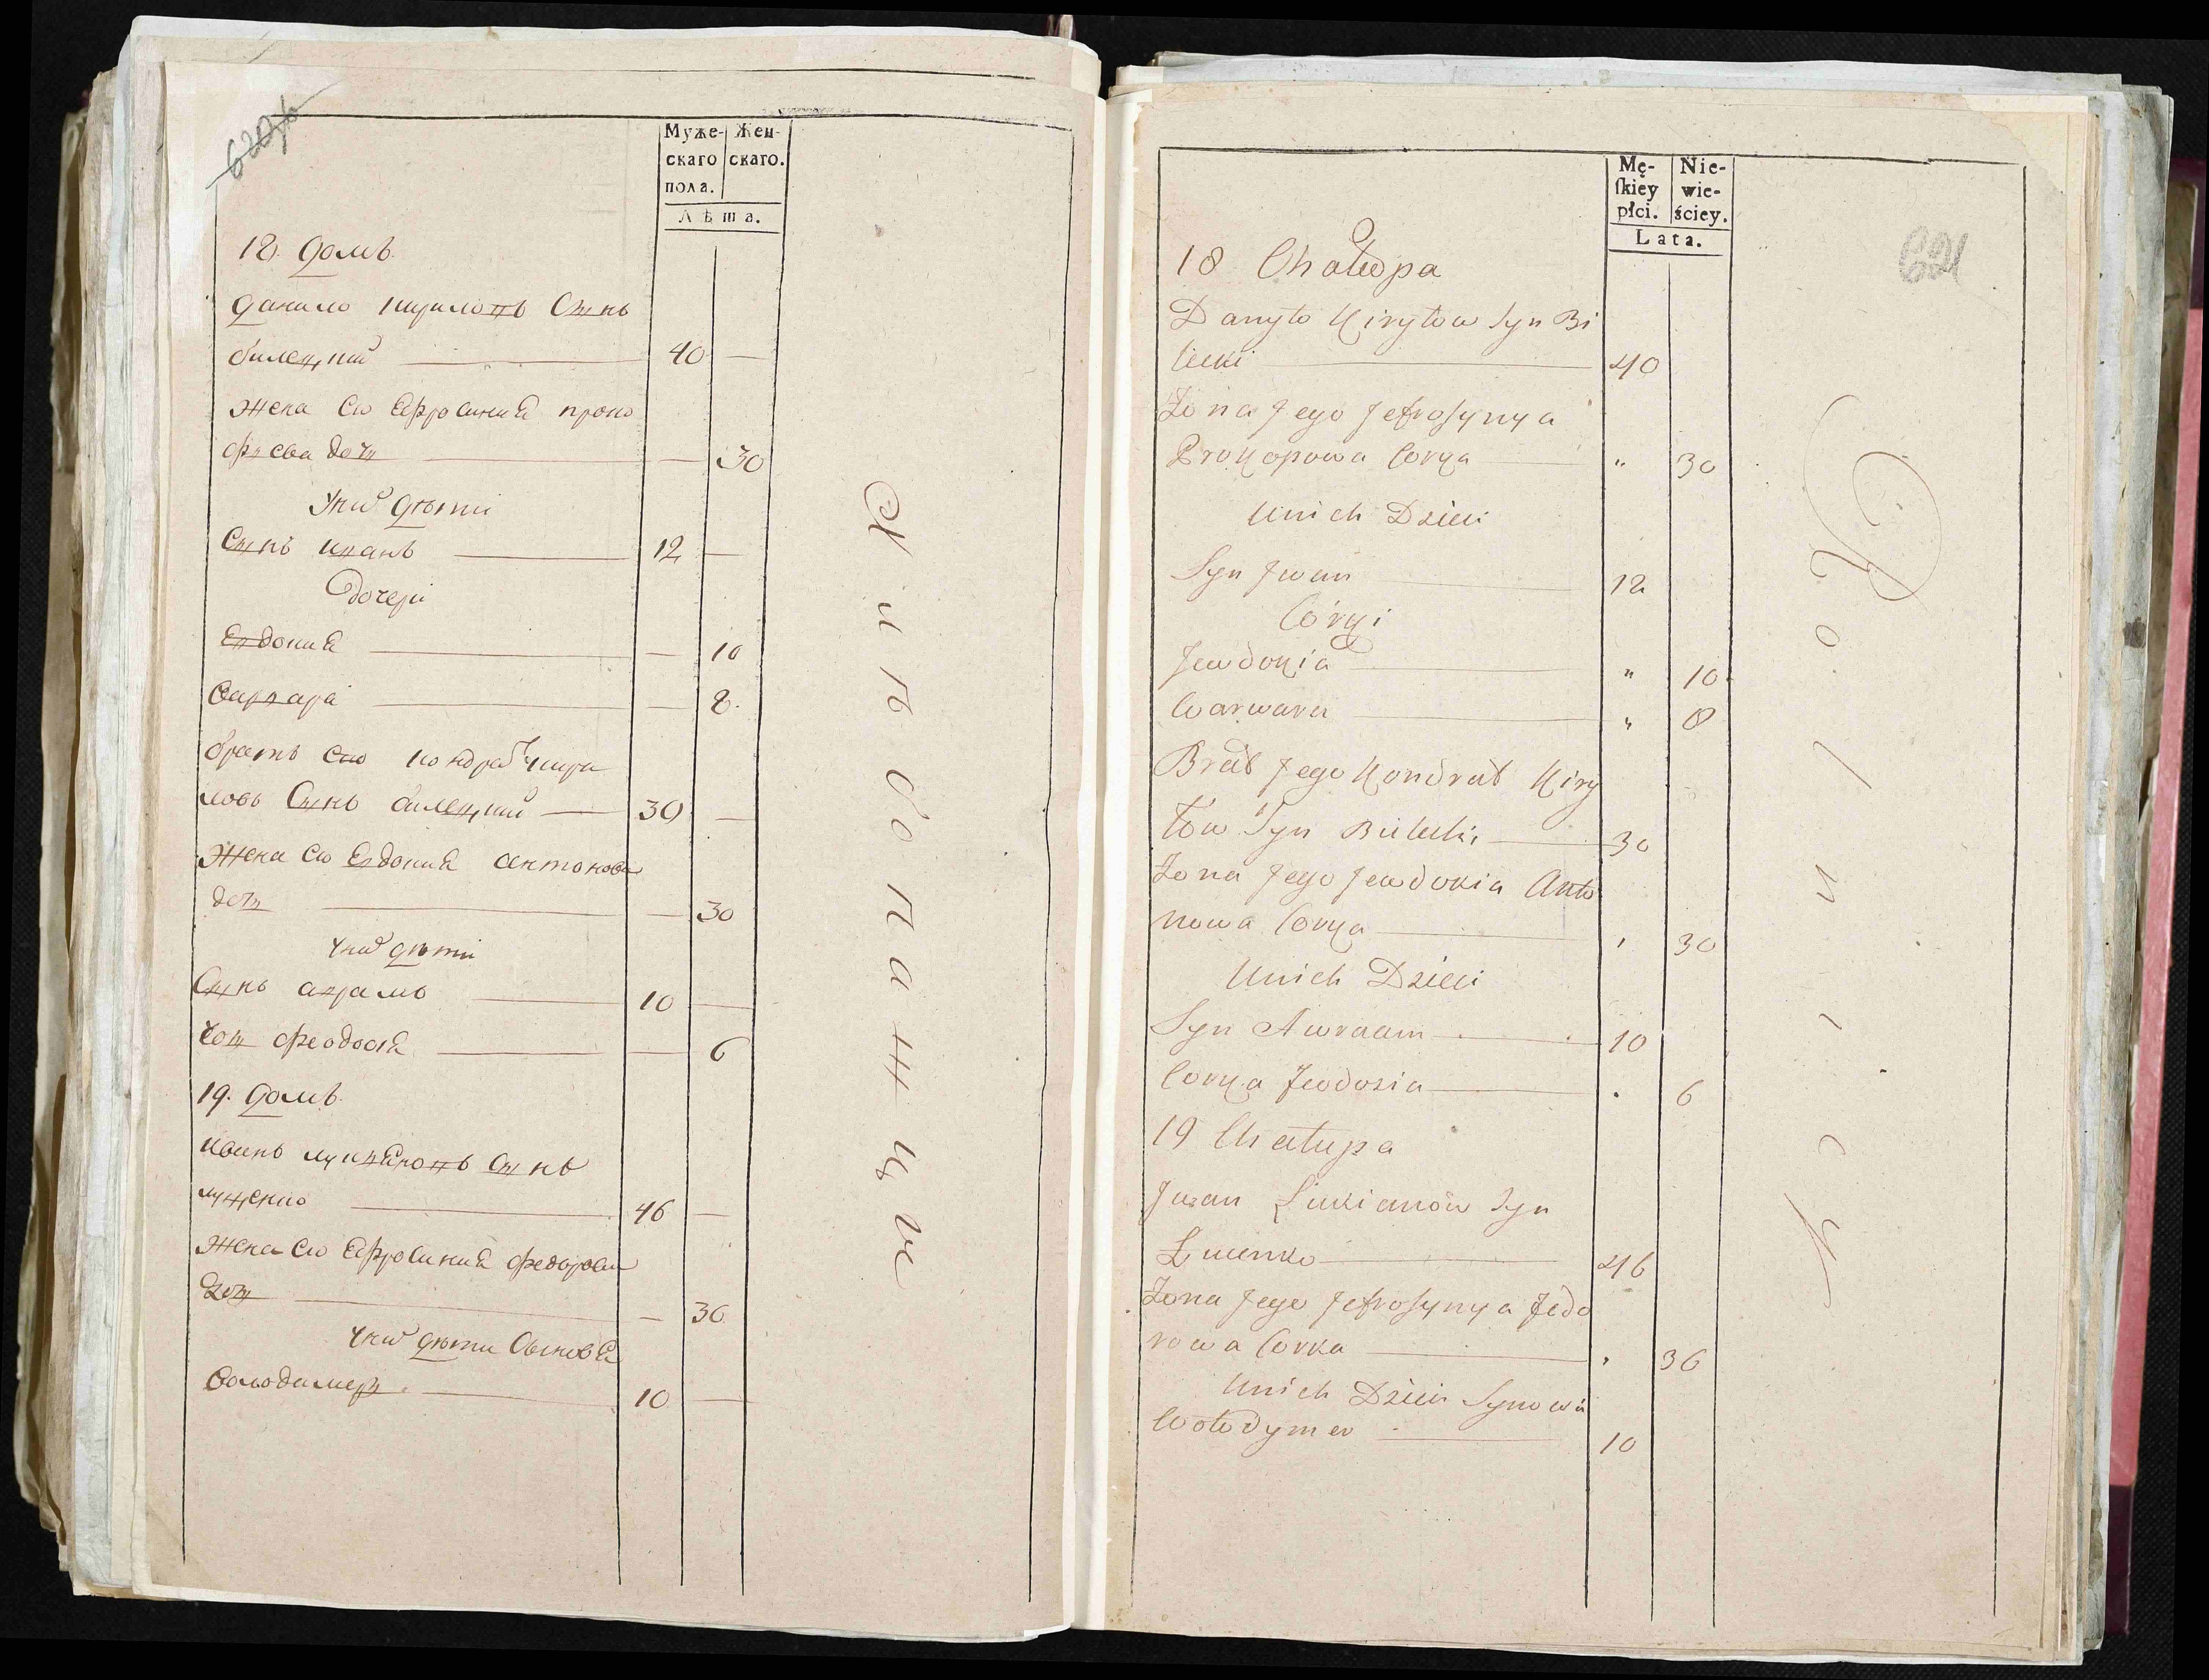 620об
Муже- Жен-
скаго скаго.
пола.
Лѣта.
18. домъ
данило кириловъ Сынъ
билецкий 40 —
жена его Ефросиния проко
фьева дочь — 30
У них дѣти
Сынъ иванъ 12 —
Дочери
Евдокия — 10
Варвара — 8.
братъ его кондрат кири
ловъ Сынъ билецкий 30 —
Жена его Евдокия антонова
дочь — 30
У них дѣти
Сынъ аврамъ 10 —
дочь феодосия — 6
19. домъ
иванъ лукяновъ Сынъ
луценко 46 —
жена его Ефросиния федорова
дочь — 36
У них дѣти Сыновья
Володимер 10 —
Mę- Nie-
ſkiey wie-
płci. ściey.
Lata.
621
18 Chałupa
Danyło Kiryłow Syn Bi
lecki 40
Żona Jego Jefrosynya
Prokopowa Corka „ 30
U nich Dzieci
Syn Jwan 12
Córki
Jewdokia „ 10
Warwara „ 8
Brat Jego Kondrat Kiry
łow Syn Bilecki 30
Żona Jego Jewdokia Anto
nowa Corka , 30
U nich Dzieci
Syn Awraam 10
Corka Feodozia . 6
19 Chałupa
Jwan Łukianów Syn
Łucenko 46
Żona Jego Jefrosynya Fedo
rowa Corka , 36
U nich Dzieci Synowie
Wołodymer 10